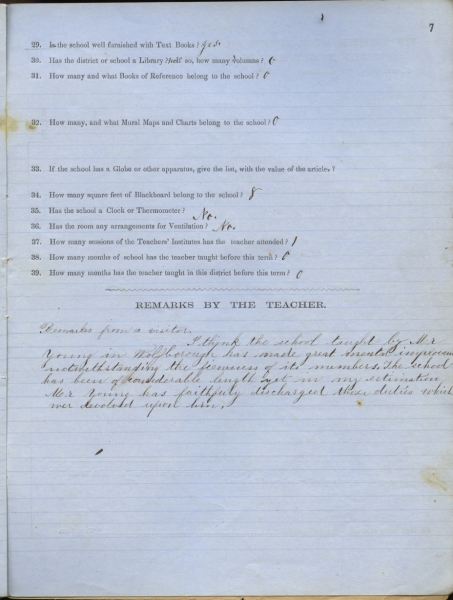 7
29. Is the school well furnished with Text Books? yes.
30. Has the district or school a Library? If so, how many volumes? 0
31. How many and what Books of Reference belong to the school? 0
32. How many, and what Mural Maps and Charts belong to the school? 0
33. If the school has a Globe or other apparatus, give the list, with the value of the articles?
34. How many square feet of Blackboard belong to the school? 8
35. Has the school a Clock or Thermometer? No.
36. Has the room any arrangements for Ventilation? No.
37. How many sessions of the Teachers' Institutes has the teacher attended? 1
38. How many months of school has the teacher taught before this term? 0
39. How many months has the teacher taught in this district before this term? 0
REMARKS BY THE TEACHER.
Remarks from a visitor.
I think the school taught by Mr
Young in Wolfborough has made great mental
notwithstanding the fewness of its members. The school
has been of considerable length yet in my estimation
Mr Young has faithfully discharged those duties which
were devolved upon him.